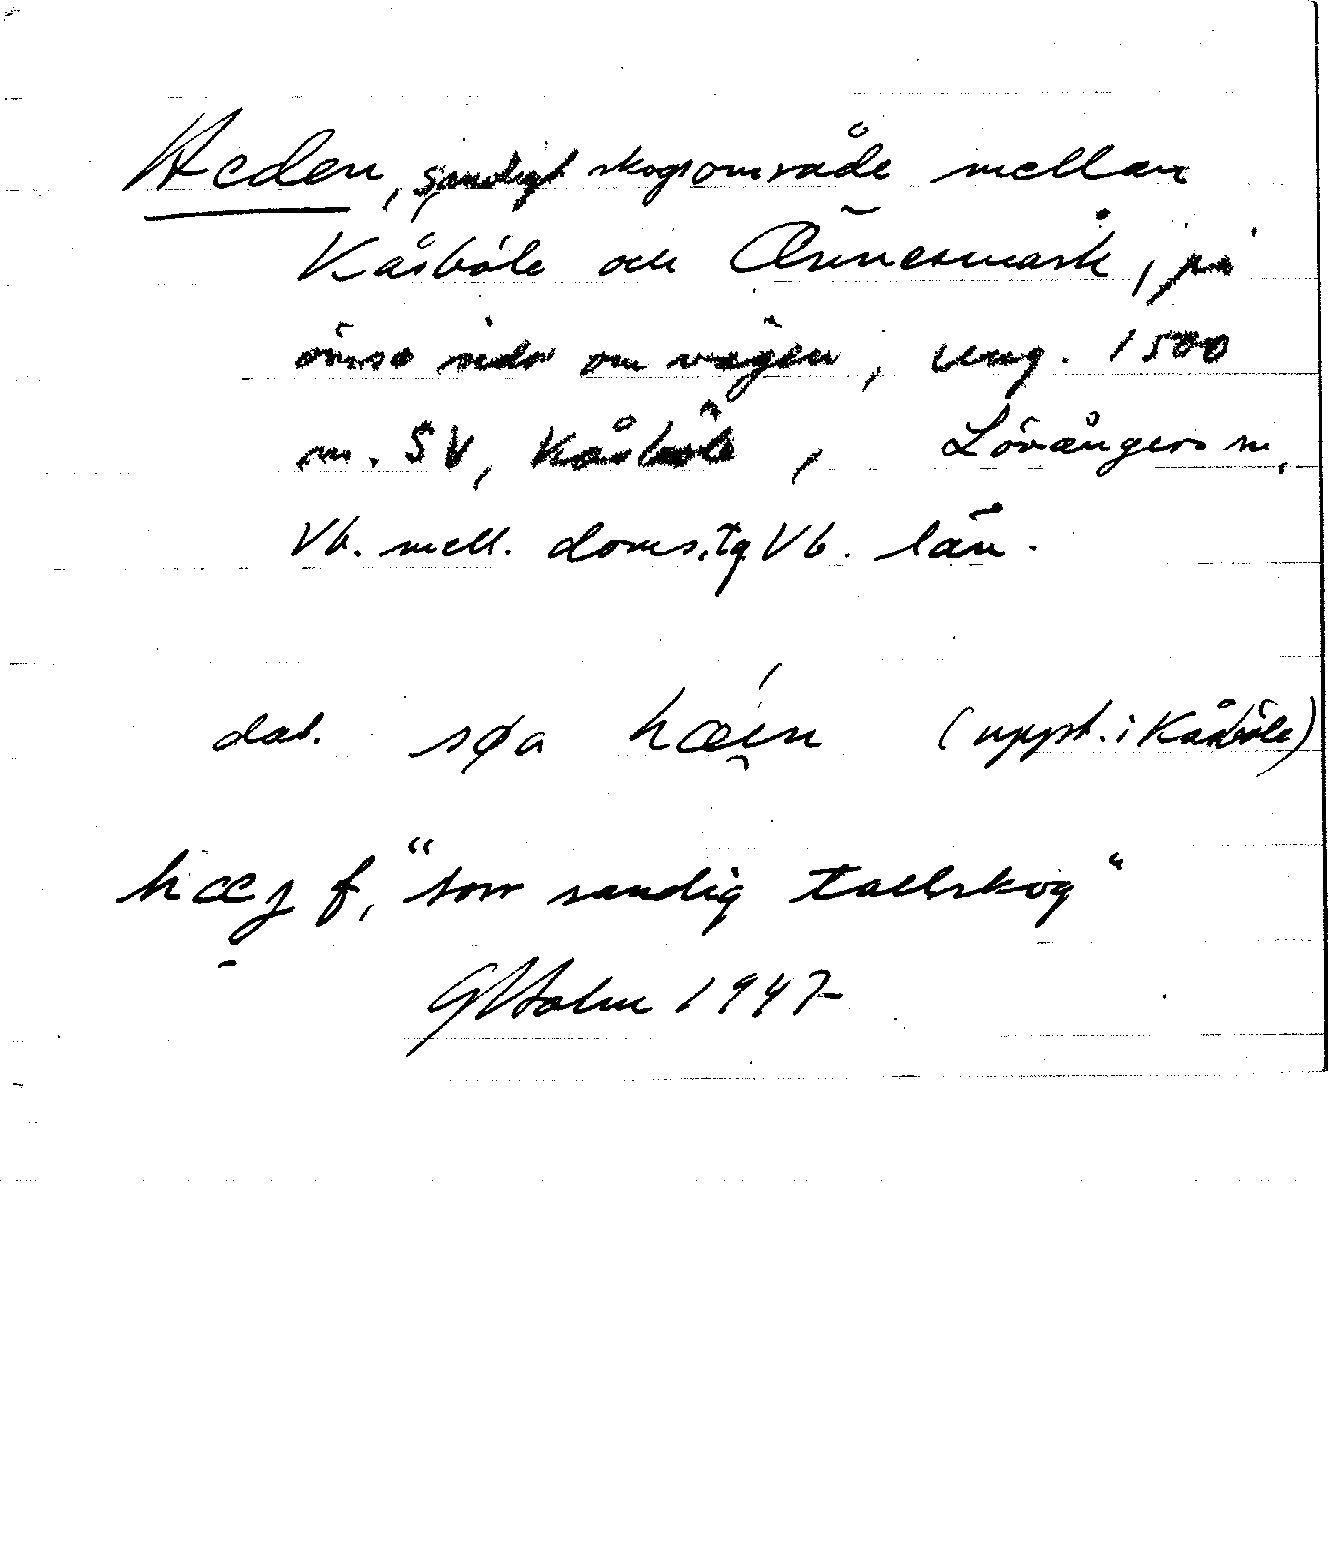 Heden, sandigt skogsområde mellan
Kåsböle och Önnesmark, på
ömse sidor om vägen, ung. 1500
m. SV, Kåsböle, Lövångers sn,
Vb. mell. doms.tg Vb. län.
dat. søa hæin (uppt. i Kåsböle)
hæj f, "torr sandig tallskog"
G Holm 1947